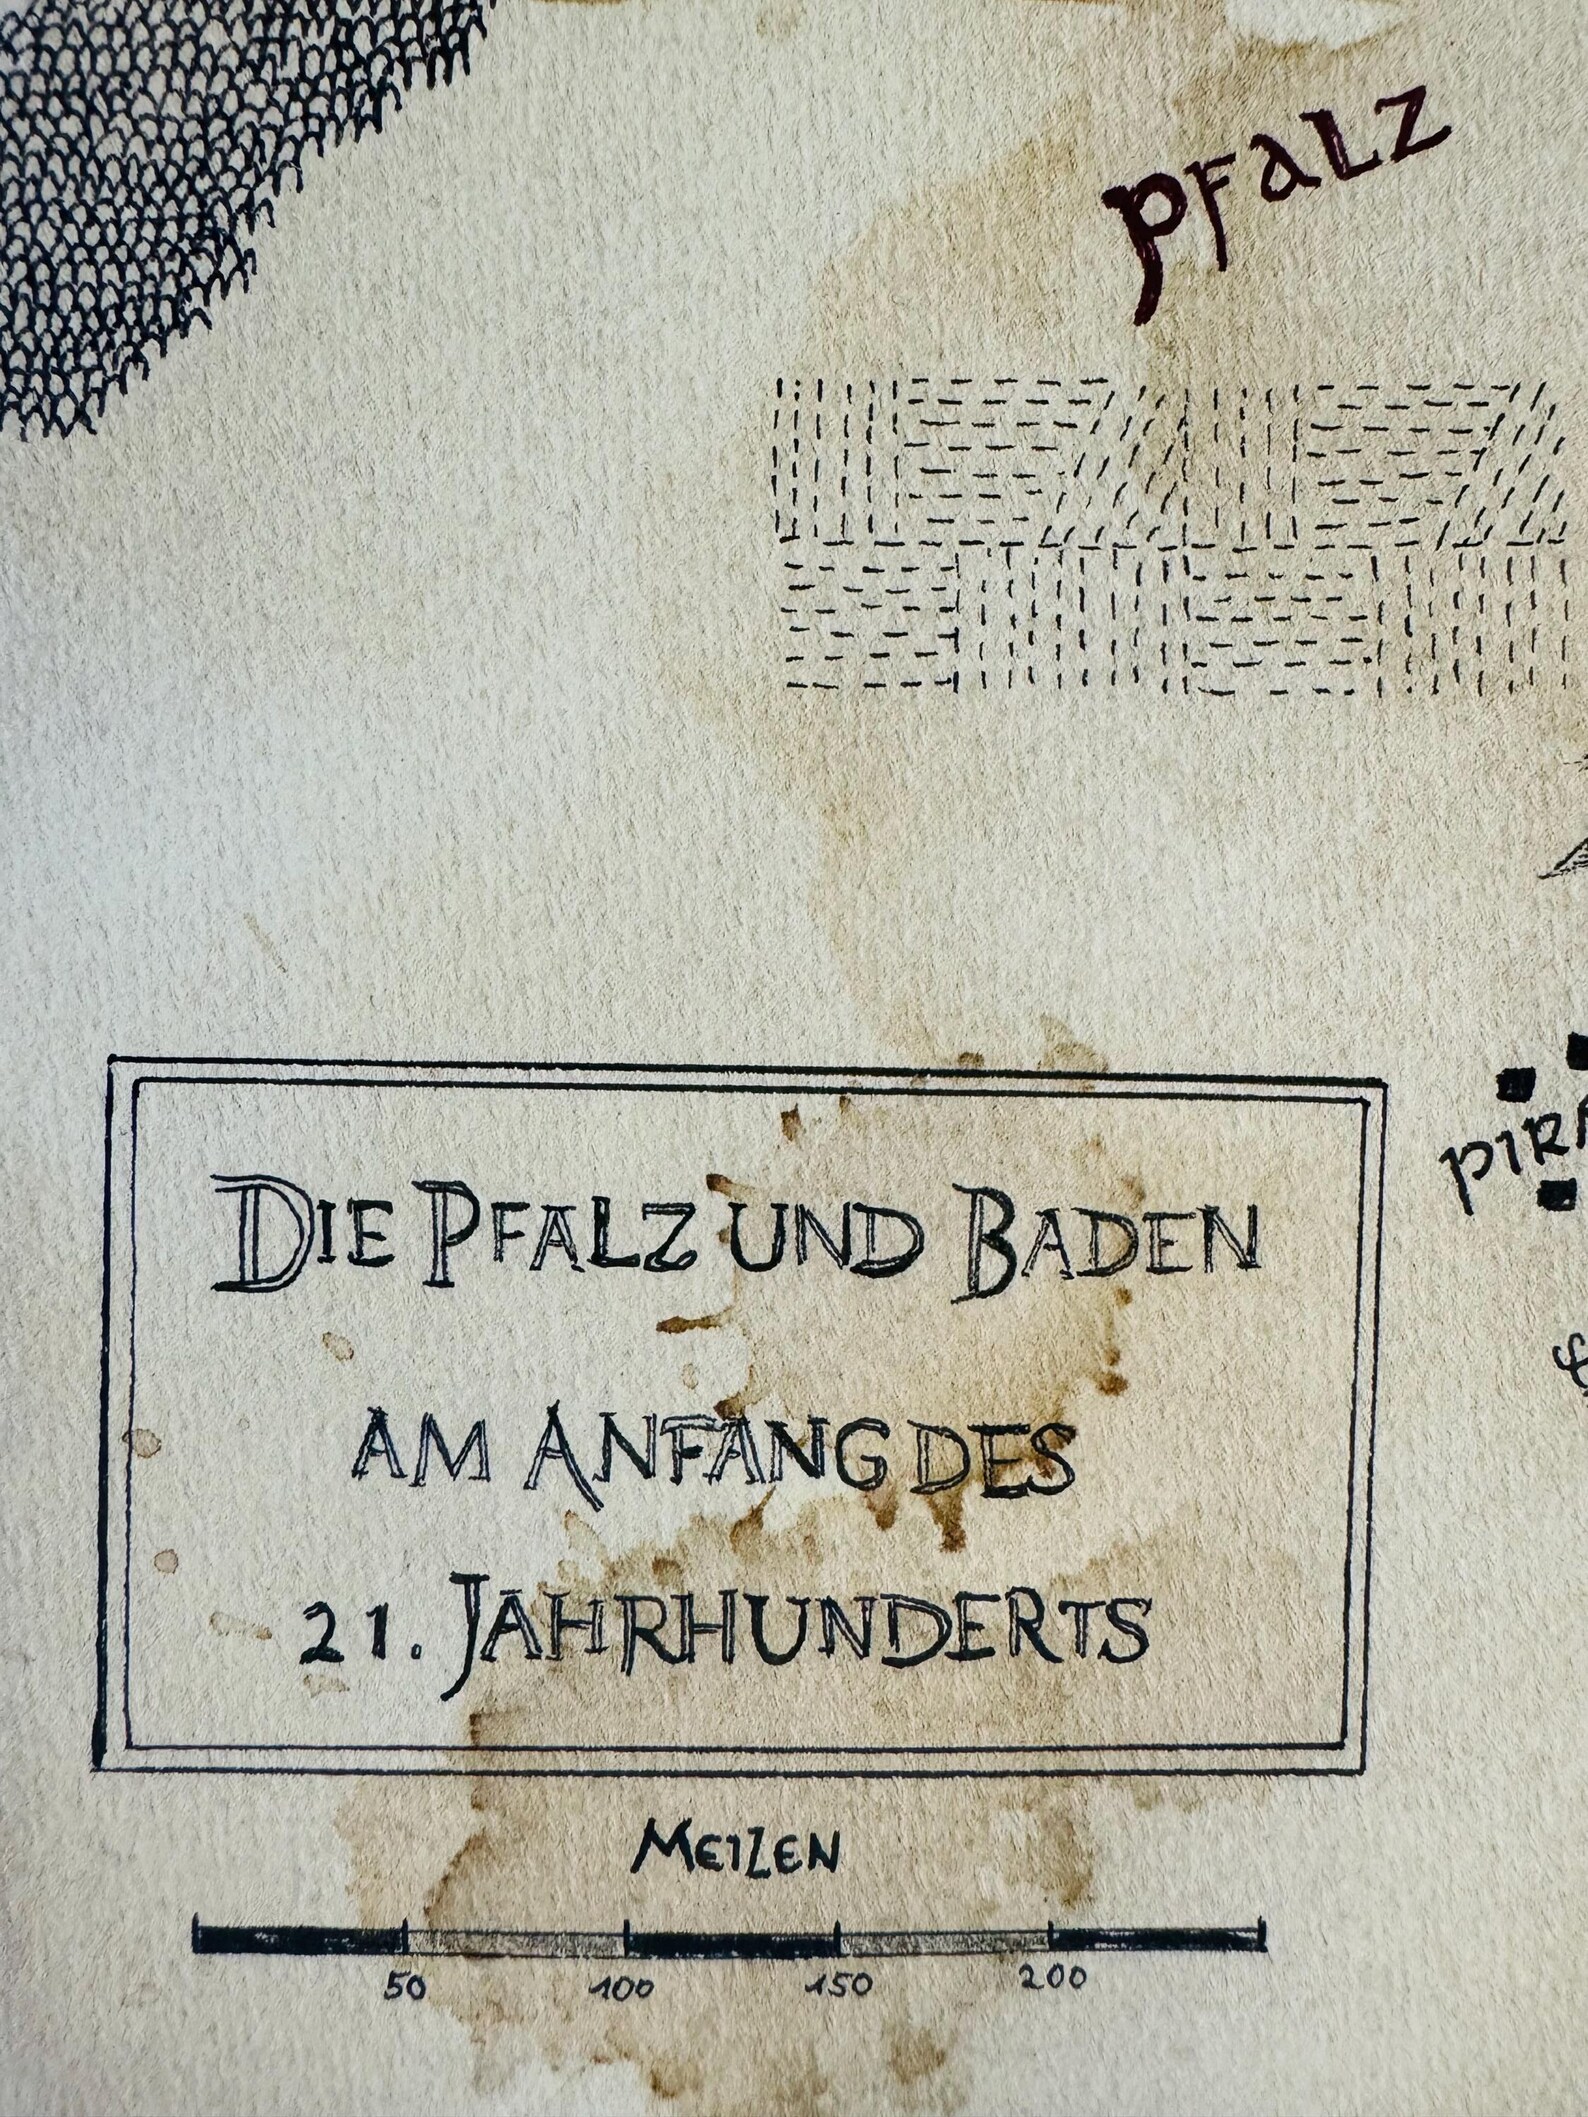 Pfalz
Die Pfalz und Baden
am Anfang des
21. Jahrhunderts
Meilen
50 100 150 200